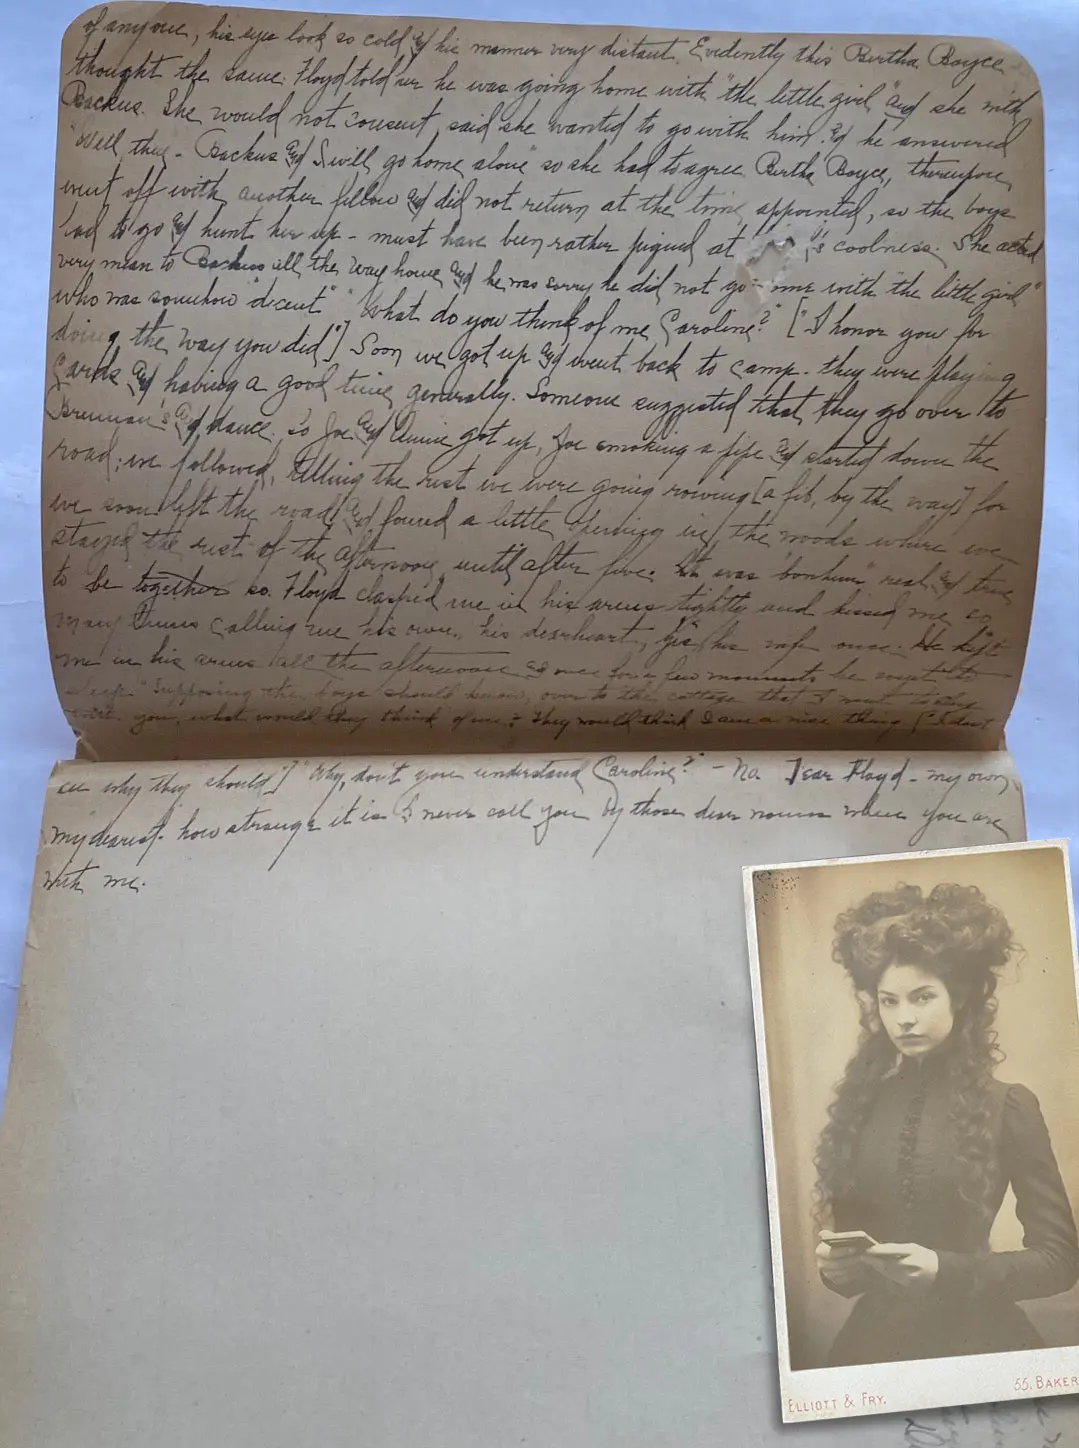 of anyone, his eyes look so cold & his manner very distant. Evidently this Bertha Boyce
thought the same. Floyd told her he was going home with "the little girl" and she with
Backus. She would not consent, said she wanted to go with him. & he answered
"Well, then - Backus & I will go home alone" so she had to agree. Bertha Boyce, thereupon,
went off with another fellow & did not return at the time appointed, so the boys
had to go & hunt her up - must have been rather piqued at 's coolness. She acted
very mean to Backus all the way home & he was sorry he did not go ome with "the little girl,"
who was somehow "decent" "What do you think of me, Caroline?" ["I honor you for
doing the way you did"] Soon we got up & went back to camp. they were playing
Cards & having a good time generally. Someone suggested that they go over to
& dance. So Joe & Annie got up, Joe smoking a pipe & started down the
road; we followed, telling the rest we were going rowing [a fib, by the way] for
we soon left the road & found a little opening in the woods where we
stayed the rest of the afternoon, until after five. It was real & true
to be together so. Floyd clasped me in his arms tightly and kissed me so
many times calling me his own, his dearheart, yes, his wife once. He kept
me in his arms all the afternoon & once for a few moments he went to
sleep. "Supposing the boys should know, over to the cottage that I went to
with you, what would they think of me? They would think I am a nice thing ["I don't
see why they should"] "Why, don't you understand Caroline?" - No. Dear Floyd - my own,
my dearest - how strange it is I never call you by those dear names when you are
with me.
ELLIOTT & FRY.
55, BAKER